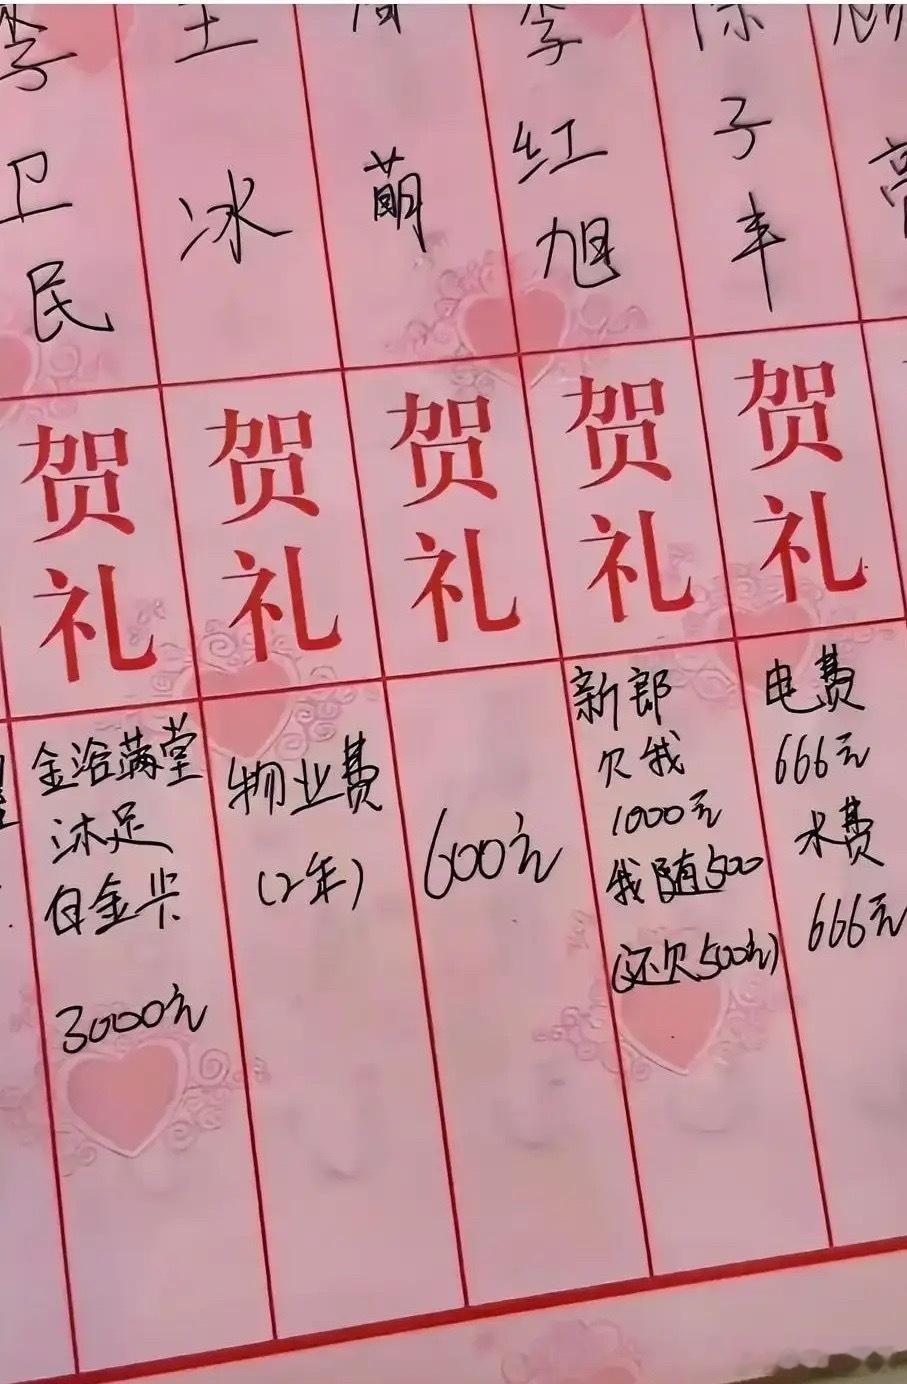 李卫民
贺礼
金浴满堂
沐足
白金卡
3000元
王冰
贺礼
物业费
(2年)
萌
贺礼
600元
李红旭
贺礼
新郎
欠我
1000元
我随500
(还欠500元)
陈子丰
贺礼
电费
666元
水费
666元